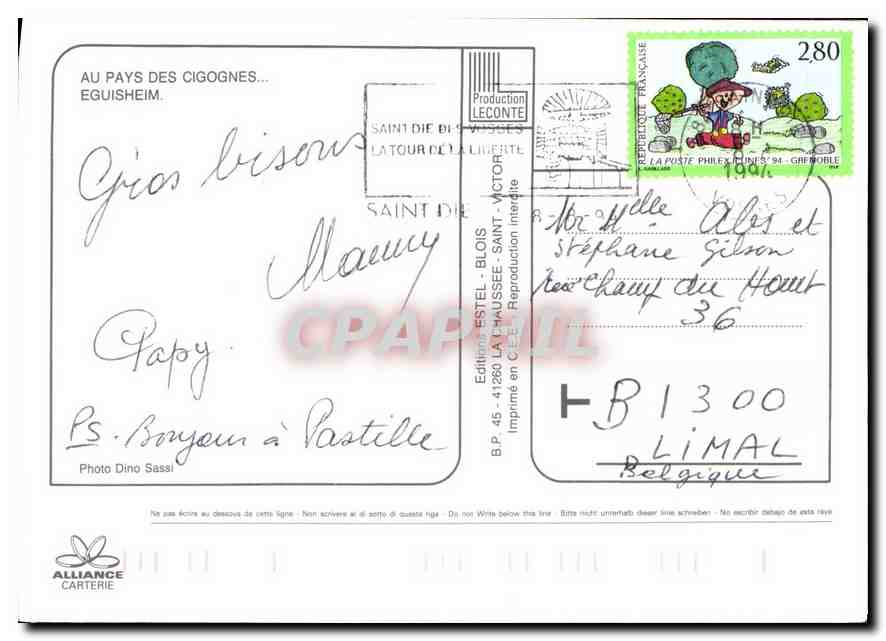 AU PAYS DES CIGOGNES...
EGUISHEIM.
Gros bisous
Mammy
Papy.
PS. Bonjour à Pastille
Photo Dino Sassi
Production
LECONTE
Editions ESTEL - BLOIS
B.P. 45 - 41260 LA CHAUSSÉE - SAINT - VICTOR
Imprimé en C.E.E. Reproduction interdite
SAINT DIE DES VOSGES
LA TOUR DE LA LIBERTE
SAINT DIE
2,80
REPUBLIQUE FRANÇAISE
LA POSTE PHILEXJEUNES '94 - GRENOBLE
199
VOSGES
Mr Melle Abs et
Stéphane Gilson
Rue Champ du Hout
36
B 1300
LIMAL
Belgique
CPAPHIL
Ne pas écrire au dessous de cette ligne - Non scrivere al di sotto di questa riga - Do not Write below this line - Bitte nicht unterhalb dieser linie schreiben - No escribir debajo de esta raya
ALLIANCE
CARTERIE